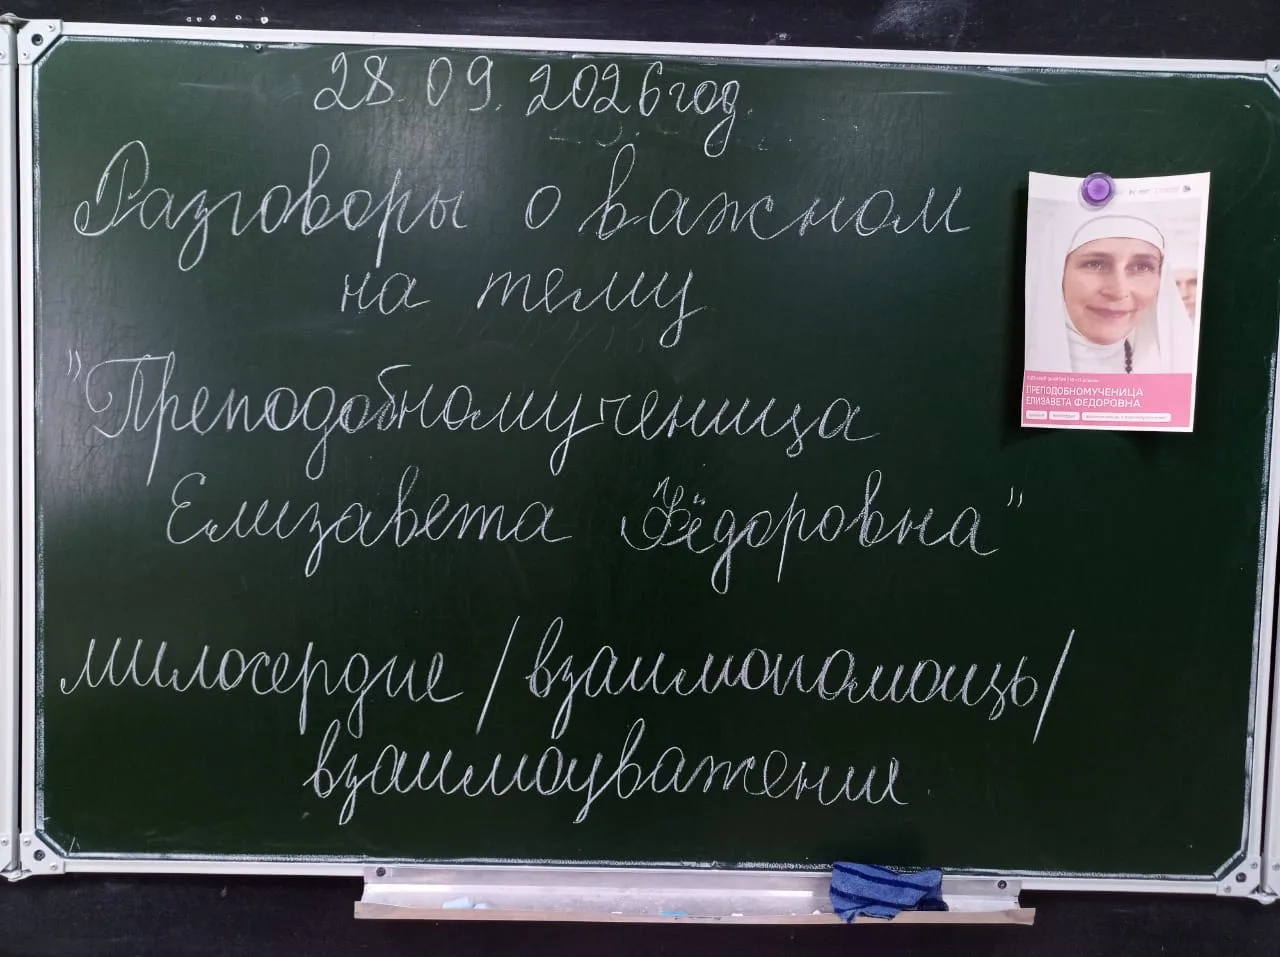 28.09.2026год.
Разговоры о важном
на тему
"Преподобномученица
Елизавета Фёдоровна"
милосердие / взаимопомощь/
взаимоуважение.
ПРЕПОДОБНОМУЧЕНИЦА
ЕЛИЗАВЕТА ФЁДОРОВНА